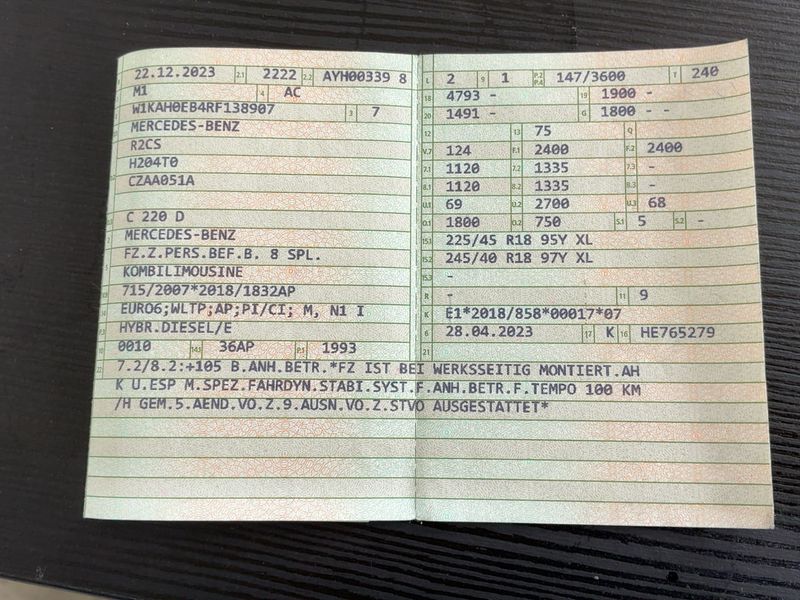 22.12.2023 2.1 2222 2.2 AYH00339 8
M1 4 AC
W1KAH0EB4RF138907 3 7
MERCEDES-BENZ
R2CS
H204T0
CZAA051A
C 220 D
MERCEDES-BENZ
FZ.Z.PERS.BEF.B. 8 SPL.
KOMBILIMOUSINE
715/2007*2018/1832AP
EURO6;WLTP;AP;PI/CI; M, N1 I
HYBR.DIESEL/E
0010 14.1 36AP P.1 1993
L 2 9 1 P.2 P.4 147/3600 T 240
18 4793 - 19 1900 -
20 1491 - G 1800 - -
12 13 75 Q
V.7 124 F.1 2400 F.2 2400
7.1 1120 7.2 1335 7.3 -
8.1 1120 8.2 1335 8.3 -
U.1 69 U.2 2700 U.3 68
O.1 1800 O.2 750 S.1 5 S.2 -
15.1 225/45 R18 95Y XL
15.2 245/40 R18 97Y XL
15.3 -
R - 11 9
K E1*2018/858*00017*07
6 28.04.2023 17 K 16 HE765279
21
22 7.2/8.2:+105 B.ANH.BETR.*FZ IST BEI WERKSSEITIG MONTIERT.AH
K U.ESP M.SPEZ.FAHRDYN.STABI.SYST.F.ANH.BETR.F.TEMPO 100 KM
/H GEM.5.AEND.VO.Z.9.AUSN.VO.Z.STVO AUSGESTATTET*